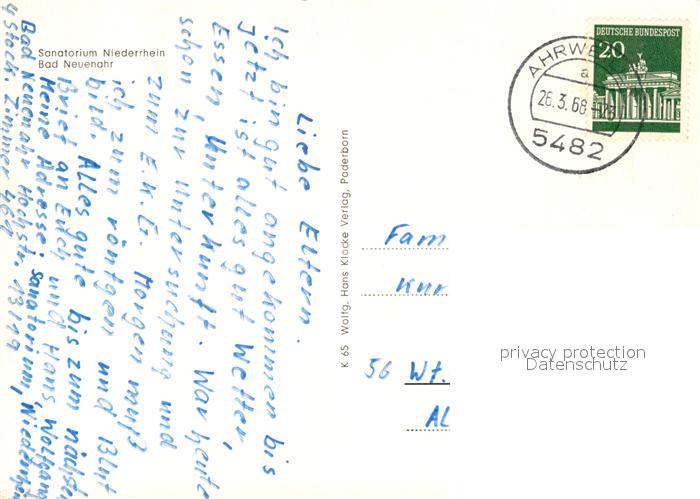 Sanatorium Niederrhein
Bad Neuenahr
Liebe Eltern.
Ich bin gut angekommen bis
jetzt ist alles gut Wetter,
Essen, Unterkunft. War heute
schon zur Untersuchung und
zum E.K.G. Morgen muß
ich zum röntgen und Blut
bild. Alles gute bis zum nächst
Brief an Euch und Hans, Wolfgang
Meine Adresse: Sanatorium, Niederrhein
Bad Neuenahr Hochstr. 13/19
4 stock. Zimmer 464
K 65 Wolfg. Hans Klocke Verlag, Paderborn
DEUTSCHE BUNDESPOST
20
AHRWEILER
a
26.3.68
5482
Fam
Knr
56 Wt.
Al
privacy protection
Datenschutz